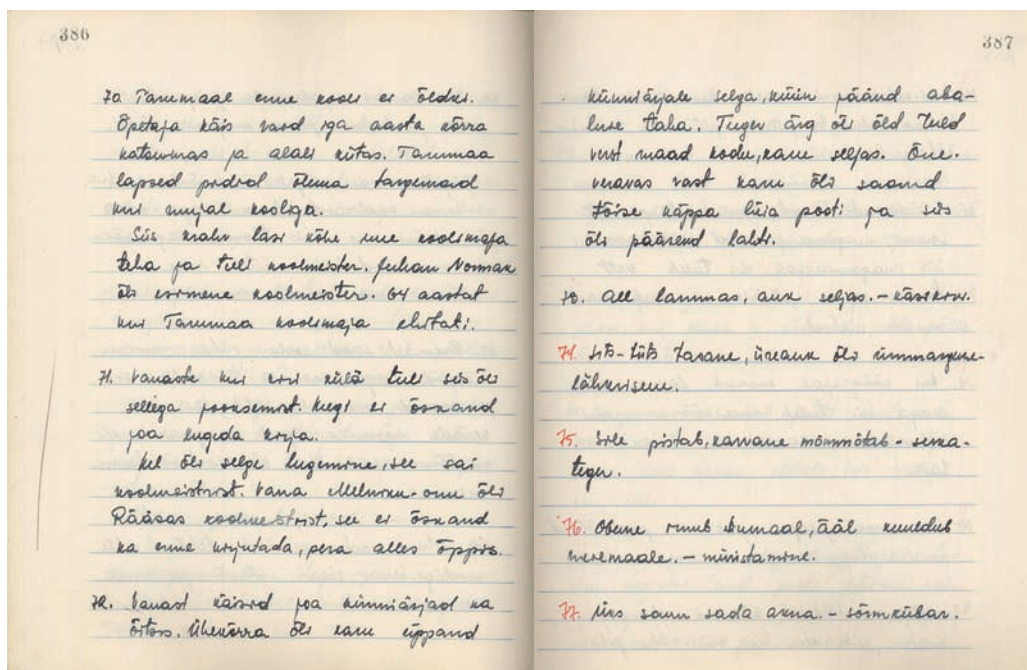 386
70. Tammaal enne kooli es õldki.
Õpetaja käis vaid iga aasta kõrra
katsumas ja alali kitas. Tammaa
lapsed pidid õlema targemaid
kui mujal kooliga.
Siis krahv lasi kõhe uue koolimaja
teha ja tulli koolmeister. Juhan Norman
õli esimene koolmeister. 64 aastat
kui Tammaa koolimaja ehitati.
71. Vanaste kui kiri külä tuli siis õli
sellega jooksemist. Kegi es õssand
joa lugeda kirja.
Kel õli selge lugemine, see sai
koolmeistrist. Vana Melniku-onu õli
Rääsas koolmeistrist, see es õssand
ka enne kirjutada, pera alles õppis.
72. Vanast käisid joa künniärjad ka
õitsis. Ühekõrra õli karu üppand
387
künniärjale selga, küün päänd aba-
luse taha. Tugev ärg õli õld tuld
verst maad kodu, karu seljas. Õue-
veravas vast karu õli saand
tõise käppa lüia posti ja siis
õli päärend lahti.
73. All lammas, auk seljas. – käsikivi.
74. Sits-sits tasane, üreauk õli ümmargune
75. Siile pistab, karvane mõmmõtab – sema-
teger.
76. Obene irnub kumaal, ääl kuuldub
meremaale. – müristamine.
77. Üks saun sada akna. – sõrmkübar.